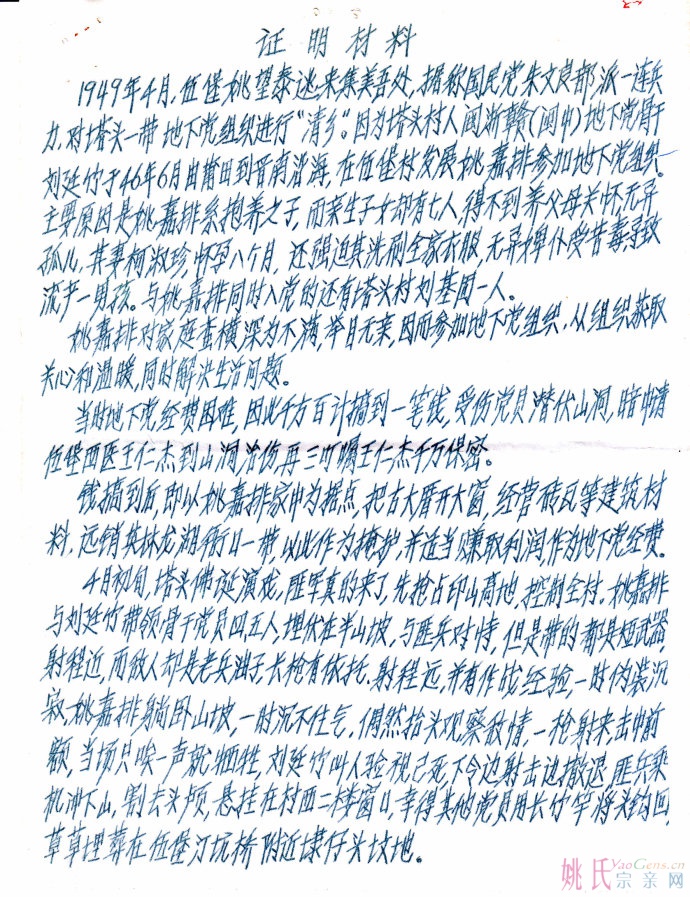 证明材料
1949年4月,伍堡姚望泰逃来集美吾处,据称国民党朱文良部派一连兵
力,对塔头一带地下党组织进行“清乡”。因为塔头村人闽浙赣(闽中)地下党骨干
刘廷竹于46年6月由莆田到晋南沿海,在伍堡村发展姚嘉排参加地下党组织。
主要原因是姚嘉排系抱养之子,而亲生子女却有七人,得不到养父母关怀无异
孤儿,其妻柯淑珍,怀孕八个月,还强迫其洗刷全家衣服,无异婢仆受苦毒导致
流产一男孩。与姚嘉排同时入党的还有塔头村刘基团一人。
姚嘉排对家庭蛮横深为不满,举目无亲,因而参加地下党组织,从组织获取
关心和温暖,同时解决生活问题。
当时地下党经费困难,因此千方百计搞到一笔钱,受伤党员潜伏山洞,暗中请
伍堡西医王仁杰到山洞治伤,再三叮嘱王仁杰千万保密。
钱搞到后,即以姚嘉排家中为据点,把古大厝开大窗,经营砖瓦等建筑材
料,远销英林龙湖衙口一带,以此作为掩护,并适当赚取利润,作为地下党经费。
4月初旬,塔头佛诞演戏,匪军真的来了,先抢占印山高地,控制全村。姚嘉排
与刘廷竹带领骨干党员四五人,埋伏在半山坡,与匪兵对恃,但是带的都是短武器,
射程近,而敌人却是老兵油子,长枪有依托,射程远,并有作战经验,一时伪装沉
寂,姚嘉排躺卧山坡,一时沉不住气,偶然抬头观察敌情,一枪射来,击中前
额,当场只唉一声就牺牲,刘廷竹叫人验视已死,下令边射击边撤退,匪兵乘
机冲下山,割去头颅,悬挂在村西一楼窗口,幸得其他党员用长竹竿将头钓回,
草草埋葬在伍堡汀坑桥附近埭仔头坟地。
姚氏宗亲网
YaoGens.cn